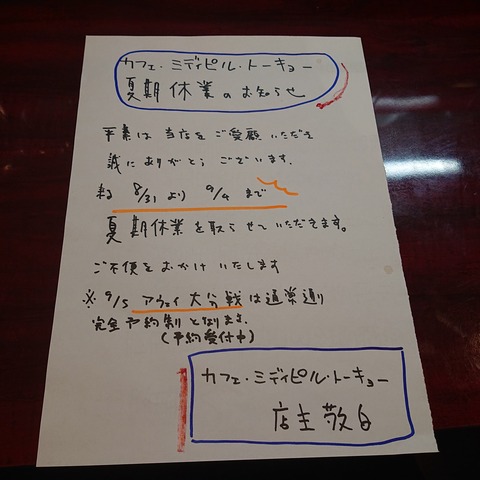 カフェ・ミディピル・トーキョー
夏期休業のお知らせ
平素は当店をご愛顧いただき
誠にありがとうございます。
来る 8/31 より 9/4 まで
夏期休業を取らせていただきます。
ご不便をおかけいたします
※ 9/5 アウェイ大分戦は通常通り
完全予約制となります。
(予約受付中)
カフェ・ミディピル・トーキョー
店主敬白